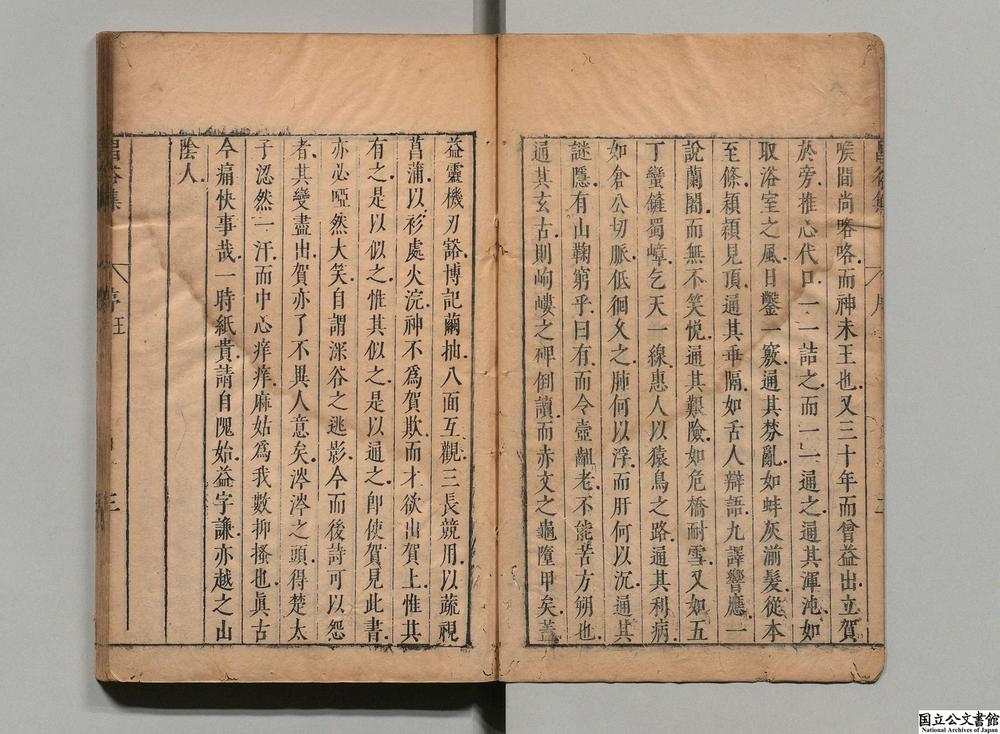 喉間尚咯咯而神未王也又三十年而曾益出立賀
於旁推心代口一一詰之而一一通之通其渾沌如
取浴室之風日鑿一竅通其棼亂如蚌灰湔髮從本
至條穎穎見頂通其垂隔如舌人辯語九譯響應一
說蘭闍而無不笑悅通其艱險如危橋耐雪又如五
丁蠻䜌蜀嶂乞天一線惠人以猿鳥之路通其利病
如倉公切脈低徊久之肺何以浮而肝何以沉通其
謎隱有山鞠窮乎曰有而令壺齟老不能苦方朔也
通其玄古則岣嶁之碑倒讀而赤文之龜墮甲矣蓋
益靈機刃豁博記繭抽八面互觀三長競用以蔬視
菖蒲以衫處火浣神不爲賀欺而才欲出賀上惟其
有之是以似之惟其似之是以通之卽使賀見此書
亦必啞然大笑自謂深谷之逃影今而後詩可以怨
者其變盡出賀亦了不異人意矣涔涔之頭得楚太
子涊然一汗而中心痒痒麻姑爲我數抑搔也眞古
今痛快事哉一時紙貴請自隗始益字謙亦越之山
陰人
昌谷集
序
三
国立公文書館
National Archives of Japan